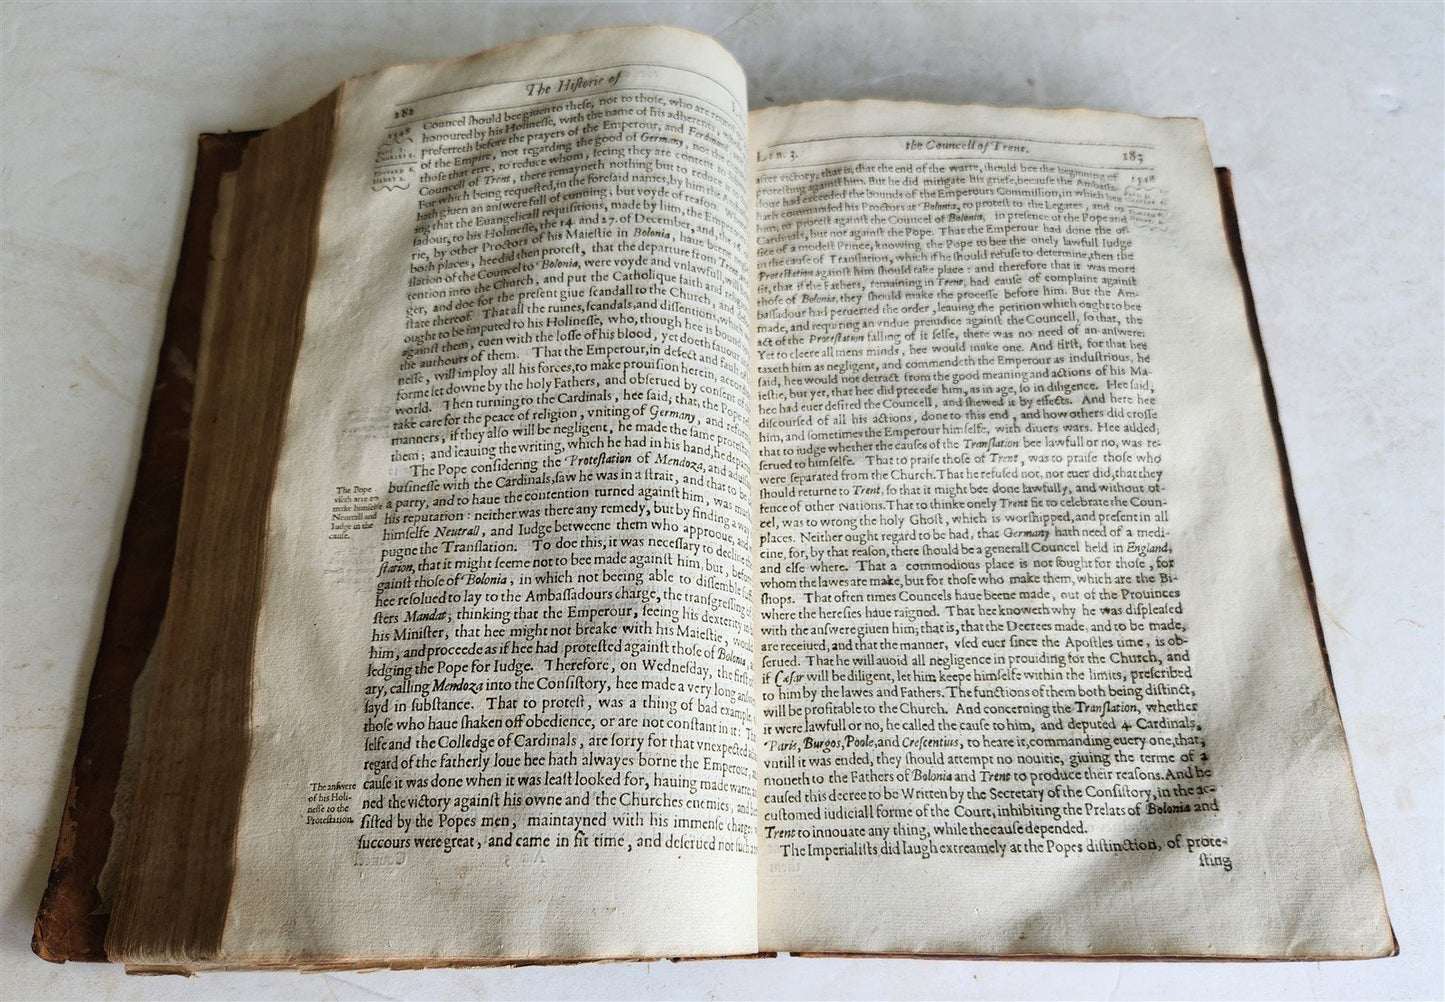 The Historie of
282
Councel should bee giuen to these, not to those, who are
honoured by his Holinesse, with the name of his adherents,
preferreth before the prayers of the Emperour, and
of the Empire, not regarding the good of Germany, not the
those that erre, to reduce whom, seeing they are content to
Councell of Trent, there remayneth nothing but to reduce
For which being requested, in the foresaid names, by him the
hath giuen an answere full of cunning, but voyde of reason.
ing that the Euangelicall requisitions, made by him, the
sadour, to his Holinesse, the 14. and 27. of December, and, the
rie, by other Proctors of his Maiestie in Bolonia, haue
both places, hee did then protest, that the departure from Trent,
slation of the Councel to Bolonia, were voyde and vnlawfull, will
tention into the Church, and put the Catholique faith and
ger, and doe for the present giue scandall to the Church, and
state thereof. That all the ruines, scandals, and dissentions, which
ought to be imputed to his Holinesse, who, though hee is bound
against them, euen with the losse of his blood, yet doeth fauour
the authours of them. That the Emperour, in defect and fault of
nesse, will imploy all his forces, to make prouision herein,
forme set downe by the holy Fathers, and obserued by consent of
world. Then turning to the Cardinals, hee said, that, the Pope
take care for the peace of religion, vniting of Germany, and
manners, if they also will be negligent, he made the same
them; and leauing the writing, which he had in his hand, he
The Pope considering the Protestation of Mendoza, and
businesse with the Cardinals, saw he was in a strait, and that to be
a party, and to haue the contention turned against him, was
his reputation: neither was there any remedy, but by finding a way
himselfe Neutrall, and Iudge betweene them who approoue, and
pugne the Translation. To doe this, it was necessary to decline the
station, that it might seeme not to bee made against him, but,
gainst those of Bolonia, in which not beeing able to dissemble
hee resolued to lay to the Ambassadours charge, the transgressing of
sters Mandat; thinking that the Emperour, seeing his dexterity in
his Minister, that hee might not breake with his Maiestie,
him, and proceede as if hee had protested against those of Bolonia,
ledging the Pope for Iudge. Therefore, on Wednesday, the first of
ary, calling Mendoza into the Consistory, hee made a very long
sayd in substance. That to protest, was a thing of bad example,
those who haue shaken off obedience, or are not constant in it:
selfe and the Colledge of Cardinals, are sorry for that vnexpected
regard of the fatherly loue hee hath alwayes borne the Emperour,
cause it was done when it was least looked for, hauing made warre
ned the victory against his owne and the Churches enemies, and
sisted by the Popes men, maintayned with his immense charge:
succours were great, and came in fit time, and deserued not such
1548
The Pope
make himselfe
Neutrall and
Iudge in the
cause.
The answere
of his Holi-
nesse to the
Protestation.
Lib. 3.
the Councell of Trent.
283
1548
after victory, that is, that the end of the warre, should bee the beginning of
protesting against him. But he did mitigate his griefe, because the Ambassa-
dour had exceeded the bounds of the Emperours Commission, in which hee
hath commanded his Proctors at Bolonia, to protest to the Legates, and to
him, to protest against the Councel of Bolonia, in presence of the Pope and
Cardinals, but not against the Pope. That the Emperour had done the of-
fice of a modest Prince, knowing the Pope to bee the onely lawfull Iudge
in the cause of Translation, which if he should refuse to determine, then the
Protestation against him should take place: and therefore that it was more
fit, that if the Fathers, remaining in Trent, had cause of complaint against
those of Bolonia, they should make the processe before him. But the Am-
bassadour had peruerted the order, leauing the petition which ought to bee
made, and requiring an vndue preiudice against the Councell, so that, the
act of the Protestation falling of it selfe, there was no need of an answere:
Yet to cleere all mens minds, hee would make one. And first, for that hee
taxeth him as negligent, and commendeth the Emperour as industrious, he
said, hee would not detract from the good meaning and actions of his Ma-
iestie, but yet, that hee did precede him, as in age, so in diligence. Hee said,
hee had euer desired the Councell, and shewed it by effects. And here hee
discoursed of all his actions, done to this end, and how others did crosse
him, and sometimes the Emperour himselfe, with diuers wars. Hee added;
that to iudge whether the causes of the Translation bee lawfull or no, was re-
serued to himselfe. That to praise those of Trent, was to praise those who
were separated from the Church. That he refused not, nor euer did, that they
should returne to Trent, so that it might bee done lawfully, and without of-
fence of other Nations. That to thinke onely Trent fit to celebrate the Coun-
cel, was to wrong the holy Ghost, which is worshipped, and present in all
places. Neither ought regard to be had, that Germany hath need of a medi-
cine, for, by that reason, there should be a generall Councel held in England,
and else where. That a commodious place is not sought for those, for
whom the lawes are make, but for those who make them, which are the Bi-
shops. That often times Councels haue beene made, out of the Prouinces
where the heresies haue raigned. That hee knoweth why he was displeased
with the answere giuen him; that is, that the Decrees made, and to be made,
are receiued, and that the manner, vsed euer since the Apostles time, is ob-
serued. That he will auoid all negligence in prouiding for the Church, and
if Cæsar will be diligent, let him keepe himselfe within the limits, prescribed
to him by the lawes and Fathers. The functions of them both being distinct,
will be profitable to the Church. And concerning the Translation, whether
it were lawfull or no, he called the cause to him, and deputed 4. Cardinals,
Paris, Burgos, Poole, and Crescentius, to heare it, commanding euery one, that,
vntill it was ended, they should attempt no nouitie, giuing the terme of a
moneth to the Fathers of Bolonia and Trent to produce their reasons. And he
caused this decree to be Written by the Secretary of the Consistory, in the ac-
customed iudiciall forme of the Court, inhibiting the Prelats of Bolonia and
Trent to innouate any thing, while the cause depended.
The Imperialists did laugh extreamely at the Popes distinction, of prote-
sting